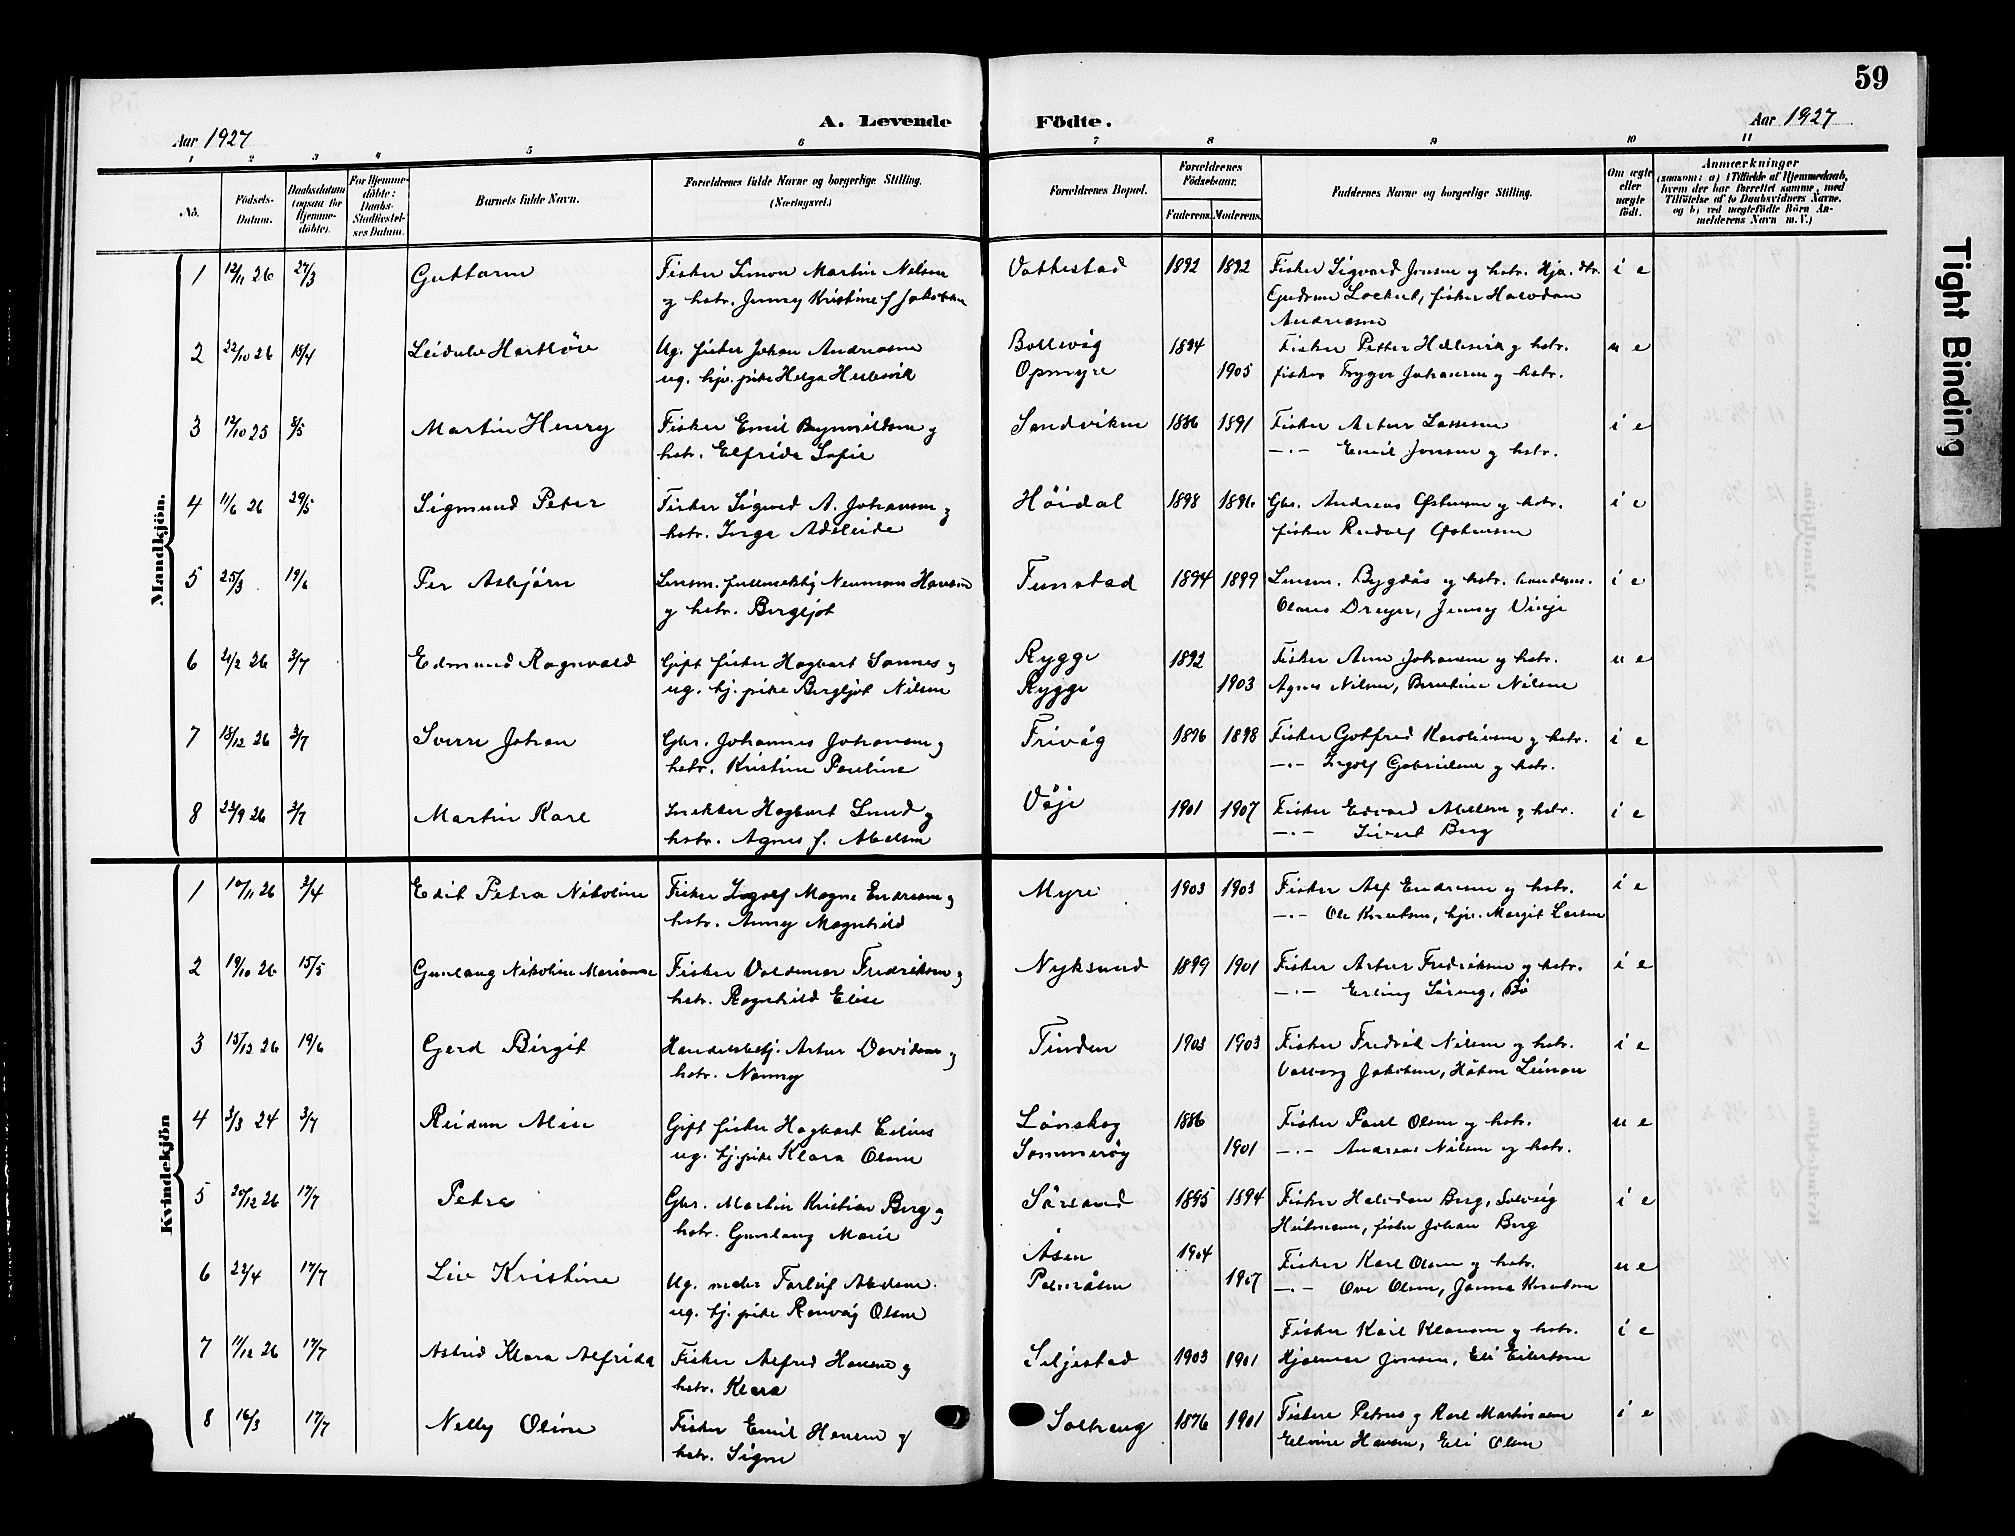 59
A. Levende Födte.
Aar 1927
Aar 1927
1 2 3 4 5 6 7 8 9 10 11
No.
Födsels-Datum.
Daabsdatum (ogsaa for Hjemme-döbte).
For Hjemme-döbte: Daabs-Stadfæstel-ses Datum.
Barnets fulde Navn.
Forældrenes fulde Navne og borgerlige Stilling. (Næringsvei.)
Forældrenes Bopæl.
Forældrenes Födselsaar.
Faderens. Moderens.
Faddernes Navne og borgerlige Stilling.
Om ægte eller uægte födt.
Anmærkninger
(saasom: a) i Tilfælde af Hjemmedaab, hvem der har forrettet samme, med Tilföielse af to Daabsvidners Navne, og b) ved uægtefödte Börn Anmelderens Navn m. V.)
Mandkjön.
1 12/11 26 27/3 Guttorm Fisker Simon Martin Nilsen Vottestad 1892 1892 Fisker Sigvard Jensen og hstr. Hja. dtr. i e
og hstr. Jenny Kristine f. Jakobsen Gudrun Lockert, fisker Halvdan
Andreasen
2 22/10 26 18/4 Leidulv Hartlöv Ug. fisker Johan Andreasen Bollevåg 1894 Fisker Petter Hellesvik og hstr. u e
ug. hjv. pike Helga Hellesvik Opmyre 1905 fisker Trygve Johansen og hstr.
3 12/10 25 8/5 Martin Henry Fisker Emil Brynildsen og Sandviken 1886 1891 Fisker Artur Lassesen i e
hstr. Elfrida Sofie —·— Emil Jensen og hstr.
4 11/6 26 29/5 Sigmund Peter Fisker Sigvrd A. Johansen og Höidal 1898 1896 Gbr. Andreas Östensen og hstr. i e
hstr. Inga Adeleide fisker Rudolf Östensen
5 25/3 19/6 Per Asbjörn Lensm. fullmektig Neumann Hansen Tunstad 1894 1899 Lensm. Bygdås og hstr. i e
og hstr. Bergljot Olaus Dreyer, Jenny Vinje
6 21/2 26 3/7 Edmund Ragnvald Gift fisker Hagbart Sannes og Rygge 1892 Fisker Arne Johansen og hstr. u e
ug. tj. pike Bergljot Nilsen Rygge 1903 Agnes Nilsen, Berntine Nilsen
7 18/12 26 3/7 Sverre Johan Gbr. Johannes Johansen og Frivåg 1896 1898 Fisker Gotfred Karolivsen og hstr. i e
hstr. Kristine Pauline —·— Ingolf Gabrielsen og hstr.
8 23/9 26 3/7 Martin Karl Snekker Hagbart Lund og Våje 1901 1907 Fisker Edvard Abelsen og hstr. i e
hstr. Agnes f. Abelsen —·— Sivert Berg
Kvindekjön
1 10/11 26 3/4 Edit Petra Nikoline Fisker Ingolf Magne Endresen og Myre 1903 1903 Fisker Alf Endresen og hstr. i e
hstr. Anny Magnhild —·— Ole Knutsen, hjv. Margit Larsen
2 19/10 26 15/5 Gunlaug Nikoline Marianne Fisker Valdemar Fredriksen og Nyksund 1899 1901 Fisker Artur Fredriksen og hstr. i e
hstr. Ragnhild Elise —·— Erling Söreng, Bö
3 13/12 26 19/6 Gerd Birgit Handelsbetj. Artur Davidsen og Tinden 1903 1903 Fisker Fredrik Nilsen og hstr. i e
hstr. Nanny Valborg Jakobsen, Håkon Simon
4 3/3 24 3/7 Reidun Alise Gift fisker Hagbart Edvis Lönskog 1886 Fisker Paul Olsen og hstr. u e
ug. tj. pike Klara Olsen Sommeröy 1901 —·— Andreas Nilsen og hstr.
5 20/12 26 17/7 Petra Gbr. Martin Kristian Berg og Sörsand 1895 1894 Fisker Halvdan Berg, Solveig i e
hstr. Gunlaug Marie Heitmann, fisker Johan Berg
6 22/4 17/7 Liv Kristine Ug. Torleif Abelsen Åsen 1904 Fisker Karl Olsen og hstr. u e
ug. tj. pike Ranvåg Olsen Pelmåsen 1907 —·— Ove Olsen, Janna Knutsen
7 11/12 26 17/7 Astrid Klara Alfrida Fisker Alfred Hansen og Siljestad 1903 1901 Fisker Karl Klausen og hstr. i e
hstr. Klara Hjalmar Jensen, Eli Eilertsen
8 16/3 17/7 Nelly Oline Fisker Emil Hansen og Solteng 1876 1901 Fiskere Petrus og Karl Martinsen i e
hstr. Signe Elvine Hansen, Eli Olsen
Tight Binding